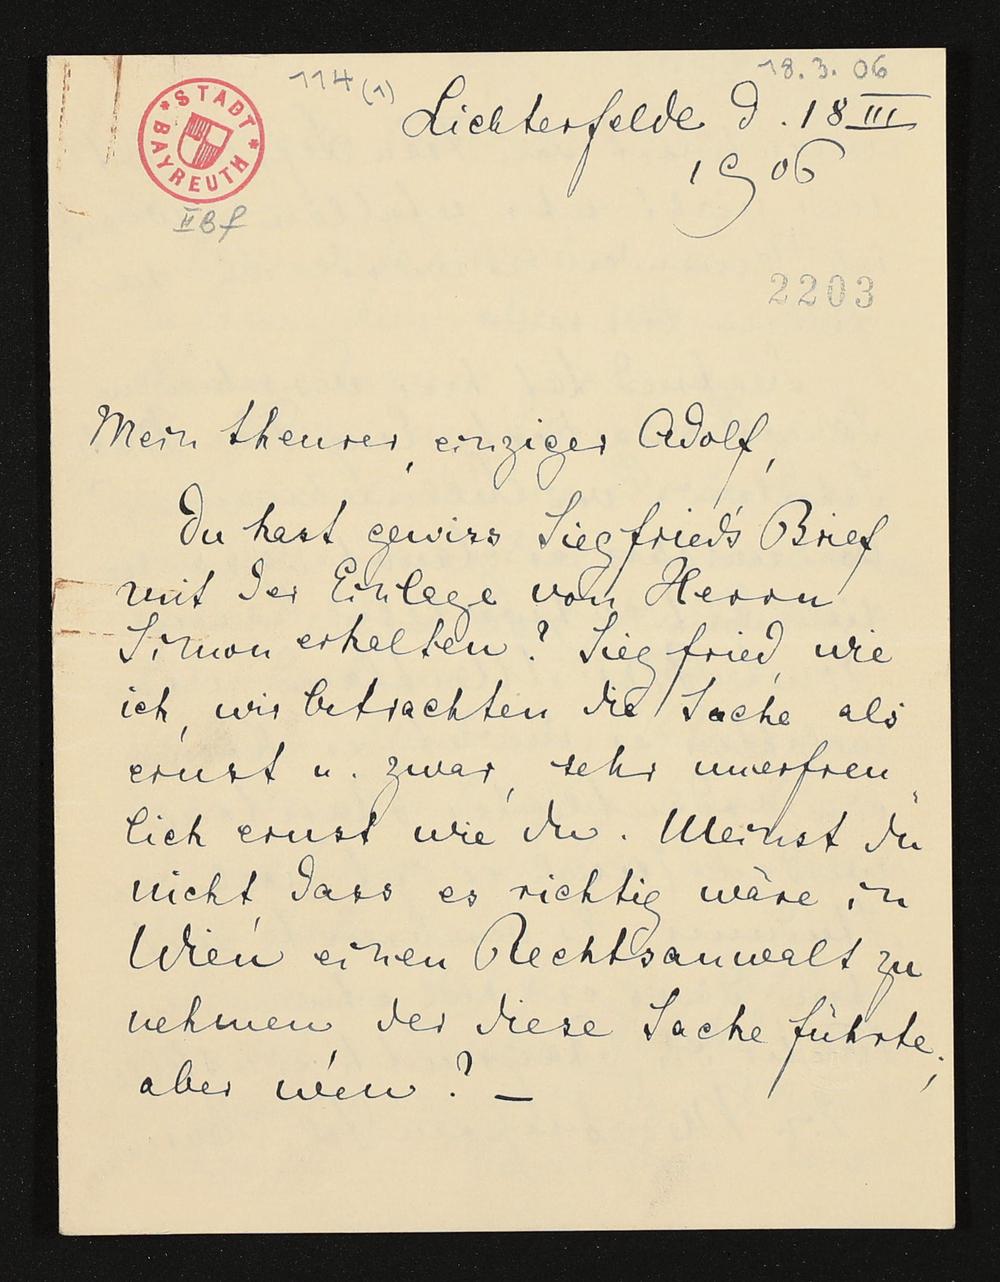 114(1)
18.3.06
* STADT *
BAYREUTH
II B f
Lichterfelde d. 18 III
1906
2203
Mein theurer, einziger Adolf,
Du hast gewiss Siegfried's Brief
mit der Einlage von Herrn
Simon erhalten? Siegfried, wie
ich, wir betrachten die Sache als
ernst u. zwar, sehr unerfreu
lich ernst wie du. Meinst du
nicht, dass es richtig wäre in
Wien einen Rechtsanwalt zu
nehmen der diese Sache führte;
aber wen? —